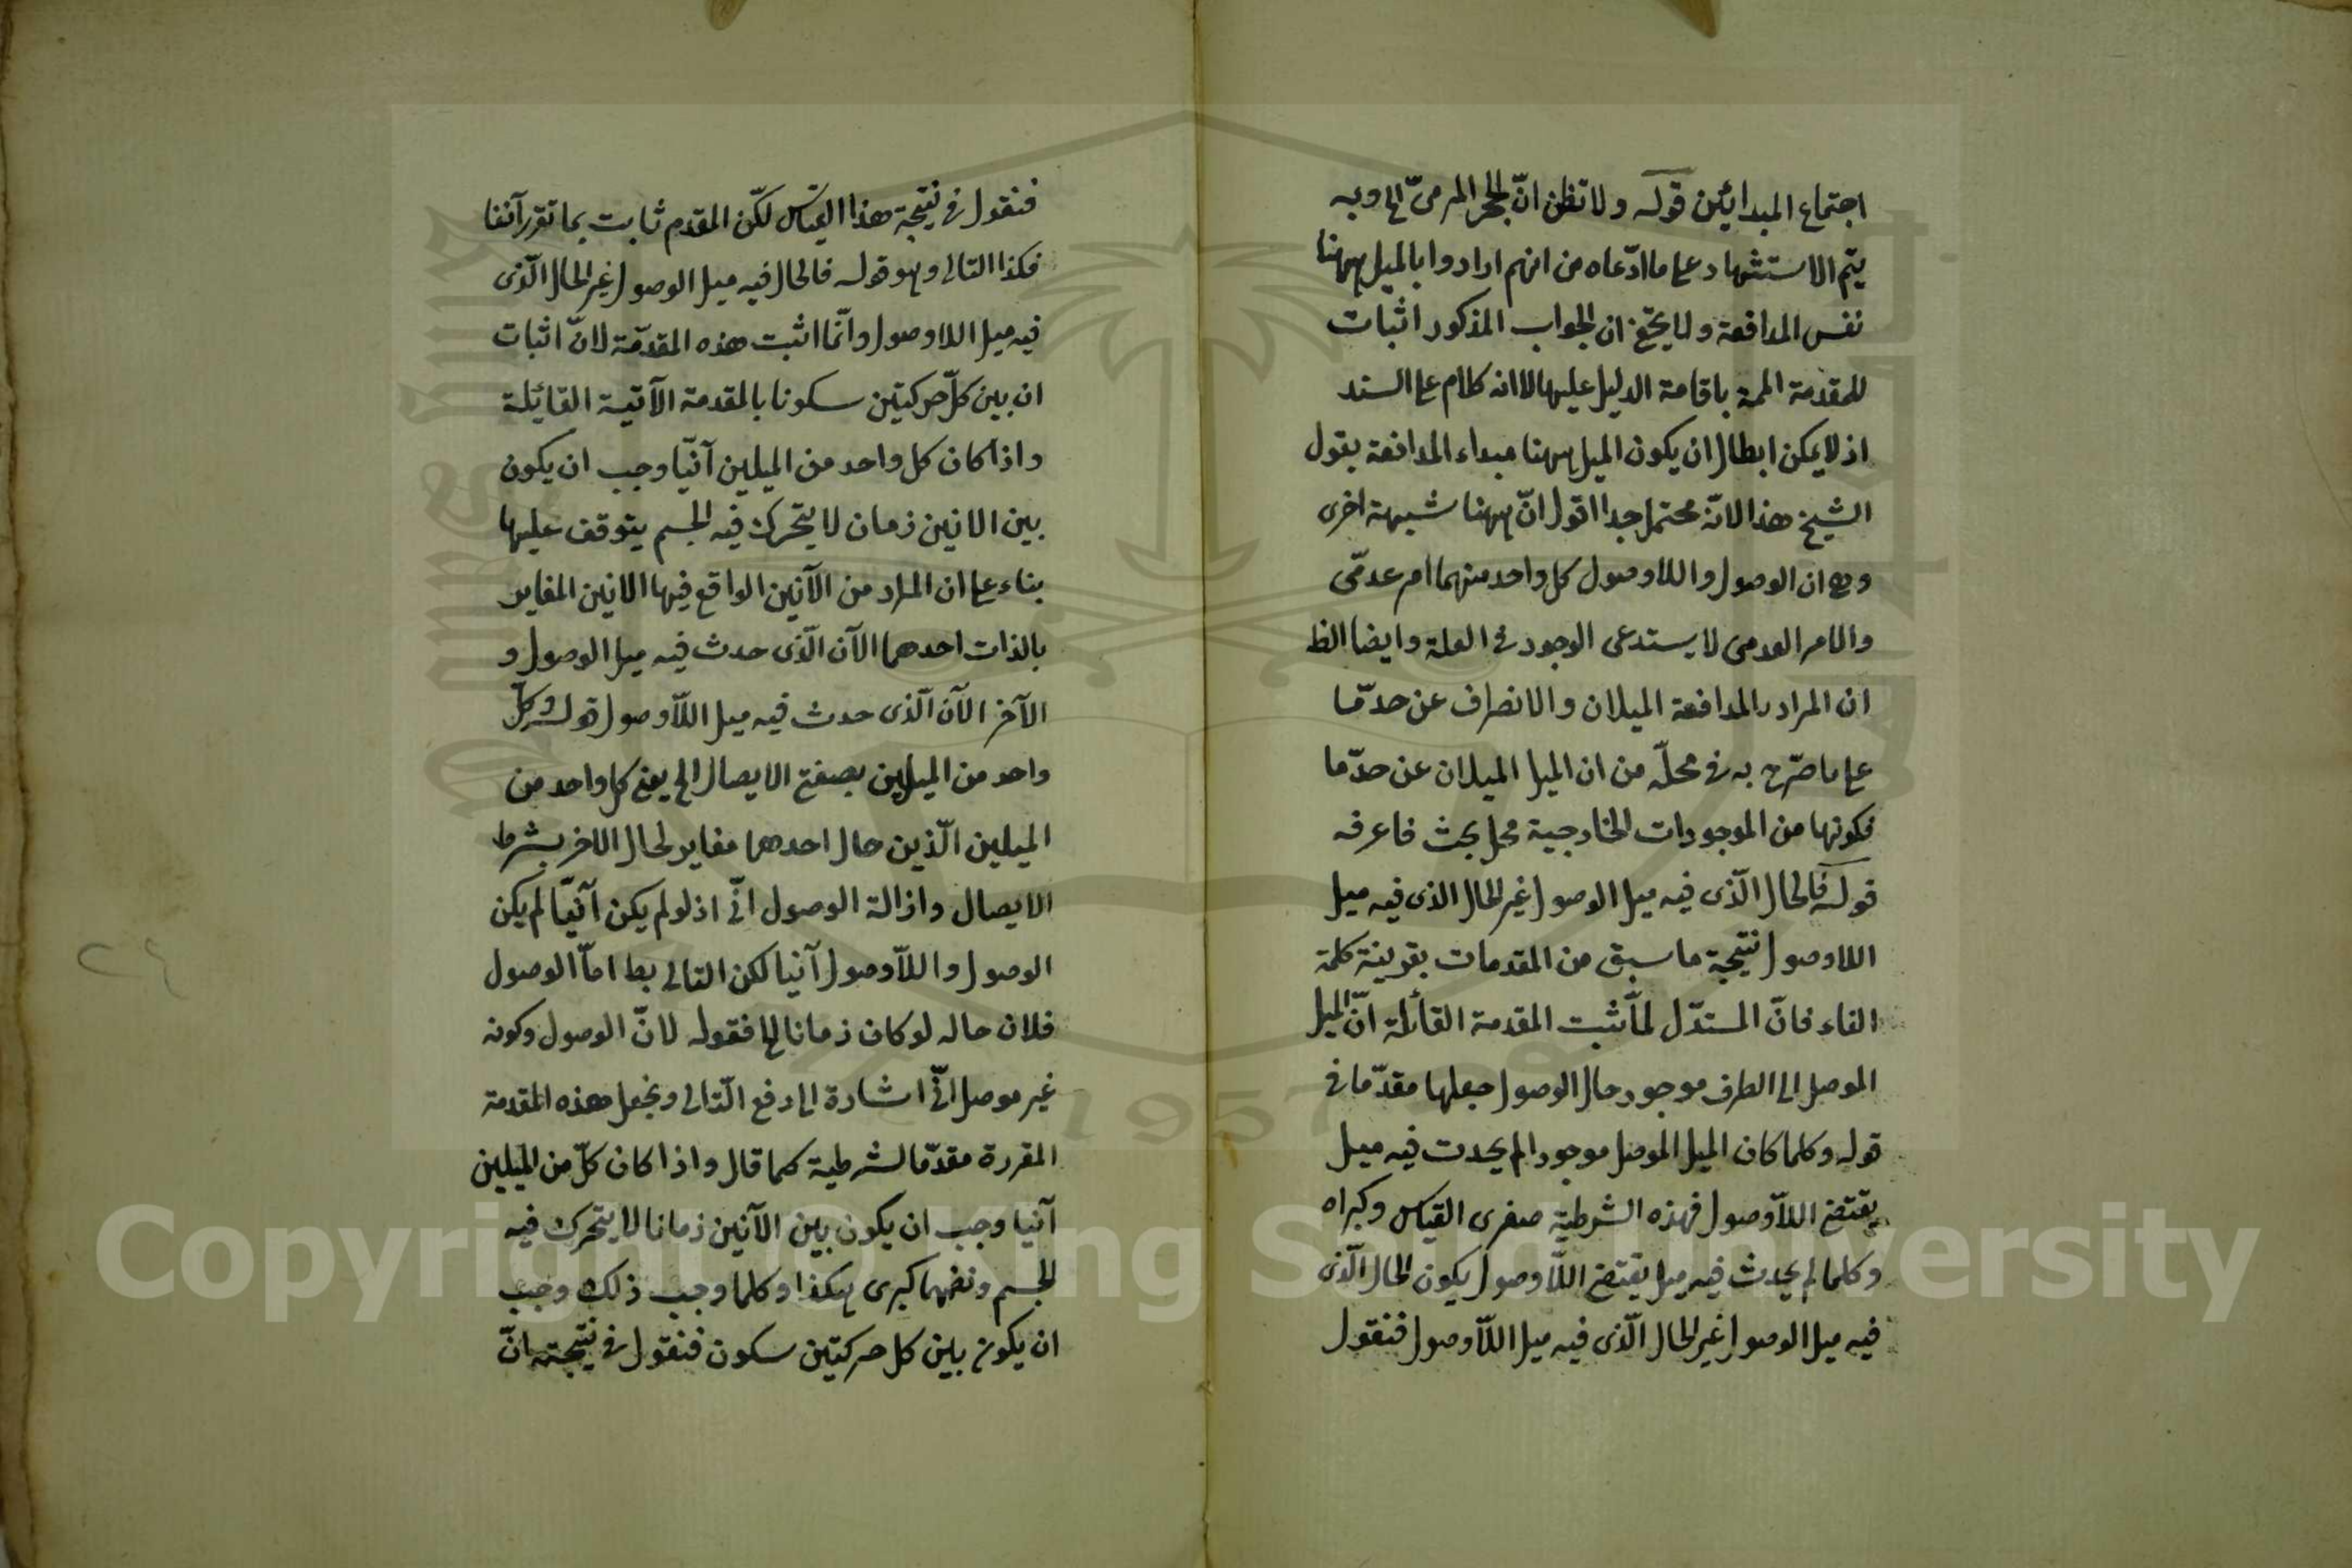 اجتماع المبدائين قوله ولا تظن انّ الحجر المرمىّ الخ وبه
يتم الاستشهاد على ما ادّعاه من انهم ارادوا بالميل ههنا
نفس المدافعة ولا يخفى ان الجواب المذكور اثبات
للمقدمة الممة باقامة الدليل عليها لا انه كلام على السند
اذ لا يمكن ابطال ان يكون الميل ههنا مبداء المدافعة بقول
الشيخ هذا لانّه محتمل جدا اقول انّ ههنا شبهة اخرى
وهى ان الوصول واللاوصول كل واحد منهما امر عدمّى
والامر العدمى لا يستدعى الوجود فى العلة وايضا الظ
ان المراد بالمدافعة الميلان والانصراف عن حدّ مّا
على ما صّرح به فى محلّه من ان الميل الميلان عن حدّ ما
فكونها من الموجودات الخارجية محل بحث فاعرفه
قوله فالحال الّذى فيه ميل الوصول غير الحال الذى فيه ميل
اللاوصول نتيجة ما سبق من المقدمات بقرينة كلمة
الفاء فانّ المستدّل لمّا ثبت المقدمة القائلة انّ الميل
الموصل الى الطرف موجود حال الوصول جعلها مقدّما فى
قوله وكلما كان الميل الموصل موجودا لم يحدث فيه ميل
يقتضى اللّاوصول فهذه الشرطية صغرى القياس وكبراه
وكلما لم يحدث فيه ميل يقتضى اللّاوصول يكون الحال الّذى
فيه ميل الوصول غير الحال الّذى فيه ميل اللّاوصول فنقول
فنقول فى نتيجة هذا القياس لكّن المقدم ثابت بما تقرر آنفا
فكذا التالى وهو قوله فالحال فيه ميل الوصول غير الحال الّذى
فيه ميل اللاوصول وانّما اثبت هذه المقدّمة لانّ اثبات
ان بين كلّ حركتين سكونا بالمقدمة الآتية القائلة
واذا كان كل واحد من الميلين آنيّا وجب ان يكون
بين الانين زمان لا يتحرك فيه الجسم يتوقف عليها
بناء على ان المراد من الآنين الواقع فيها الانين المغاير
بالذات احدهما الآن الّذى حدث فيه ميل الوصول و
الآخر الآن الّذى حدث فيه ميل اللّاوصول قوله وكلّ
واحد من الميلين بصفتى الايصال الخ يعنى كل واحد من
الميلين الّذين حال احدهما مغاير لحال الاخر بشرط
الايصال وازالة الوصول انّى اذ لو لم يكن آنيّا لم يكن
الوصول واللّاوصول آنيا لكن التالى بط امّا الوصول
فلان حاله لو كان زمانا الخ فقوله لانّ الوصول وكونه
غير موصل انّى اشارة الى رفع التّالى ونجعل هذه المقدمة
المقررة مقدّما لشرطية كما قال واذا كان كلّ من الميلين
آنيا وجب ان يكون بين الآنين زمانا لا يتحرك فيه
الجسم ونضمها كبرى هكذا وكلما وجب ذلك وجب
ان يكون بين كل حركتين سكون فنقول فى نتيجته انّ
٢٤
Copyright © King Saud University
1957